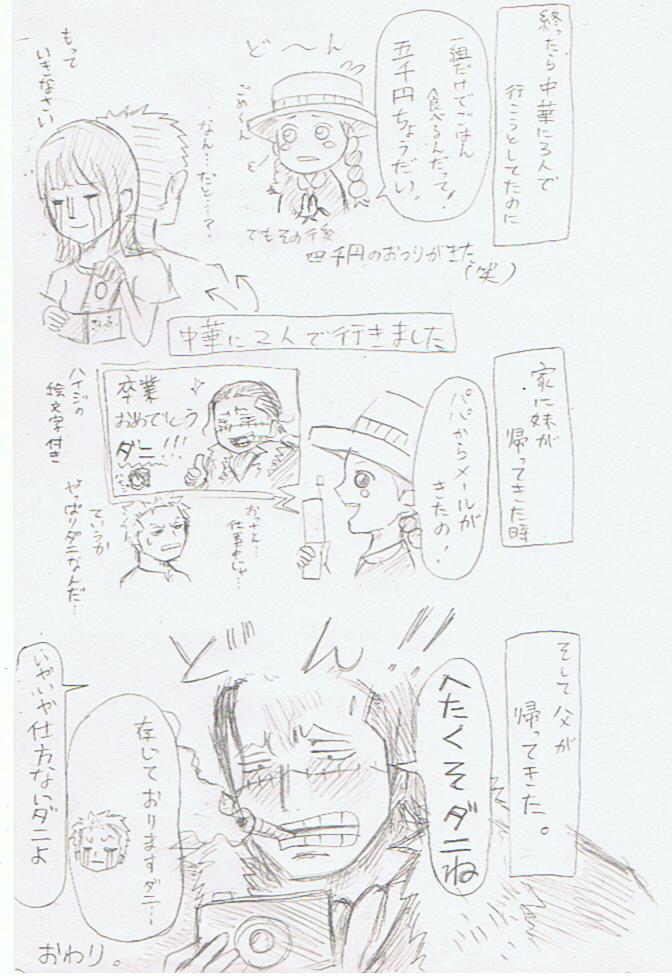 終ったら中華に3人で
行こうとしてたのに
一組だけでごはん
食べるんだって!
五千円ちょうだい。
ど〜ん
ごめ〜ん
なん…だと…?
もって
いきなさい
でもその後
四千円のおつりがきた
(笑)
中華に2人で行きました
家に妹が
帰ってきた時
パパからメールが
きたの!
卒業
おめでとう
ダニ!!!
ハイジの
絵文字付き
おっさん…
仕事中じゃ…
ていうか
やっぱりダニなんだ…
そして父が
帰ってきた。
どん!!
へたくそダニね
存じておりますダニ…
いやいや仕方ないダニよ
おわり。